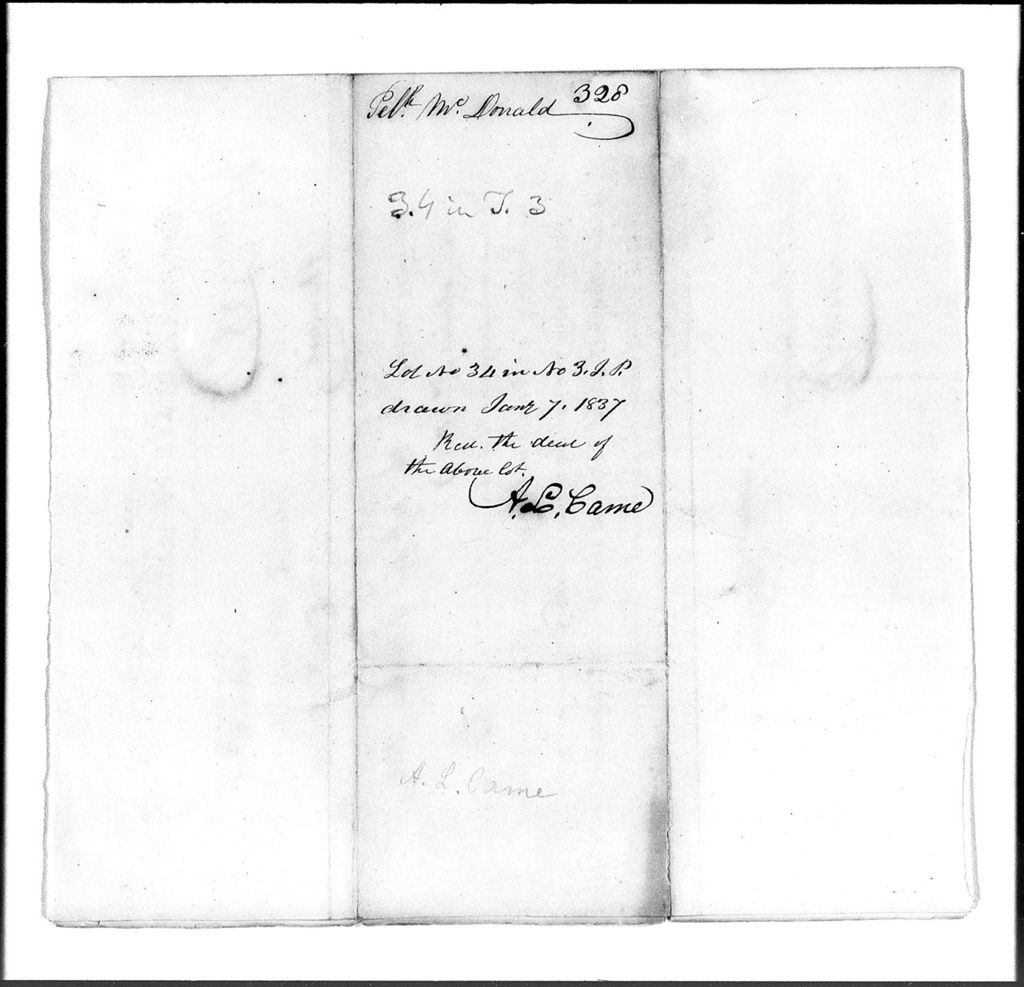 Pelh. Mc. Donald 328
34 in T. 3
Lot No 34 in No 3. I. P.
drawn Jany 7. 1837
Recd. the deed of
the above lot.
A. L. Came
A. L. Came